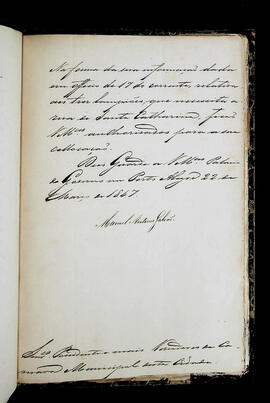 Na forma da sua informação dada
em officio de 17 do corrente, relativa
aos tres lampiões, que necessita a
rua de Santa Catharina, ficão
V.Mces authorisados para a sua
collocação.
Deos Guarde a V.Mces Palacio
do Governo em Porto Alegre 22 de
Março de 1847.
Manoel Antonio Galvão
Snres Presidente e mais Vereadores da Ca-
mara Municipal desta Cidade.